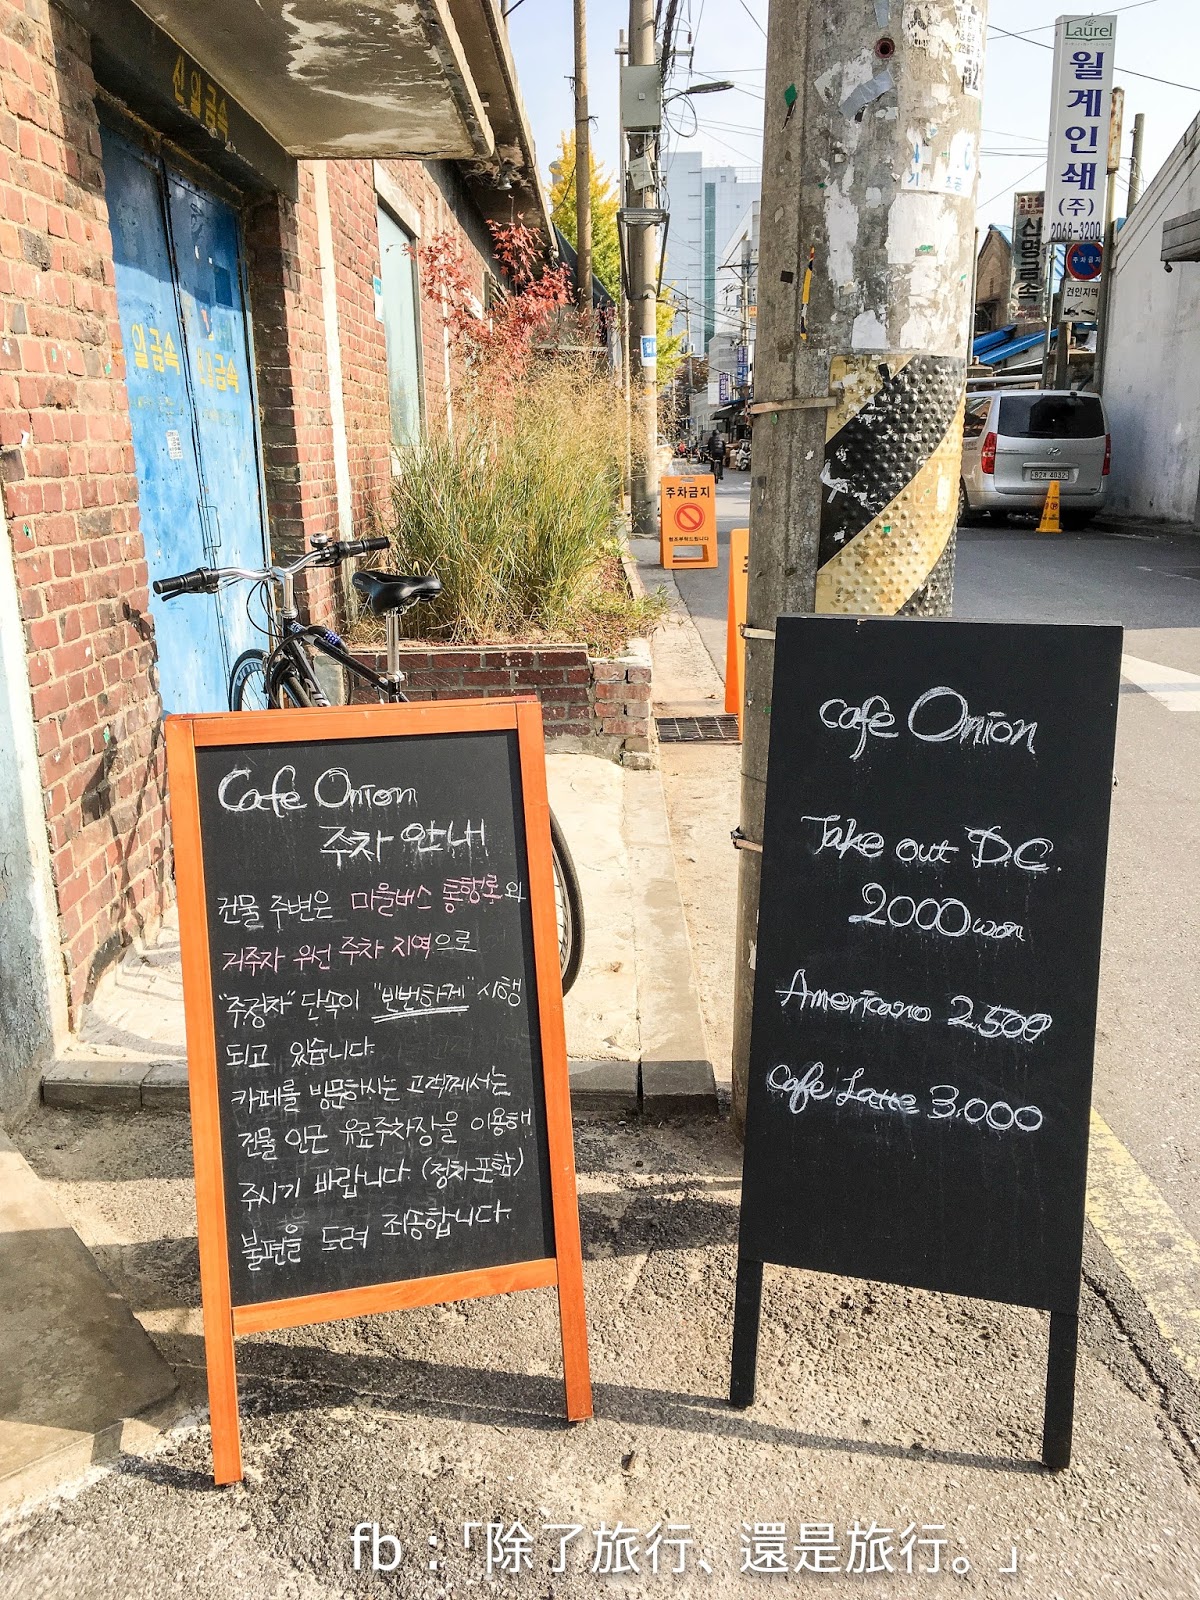 신일금속
일금속 신일금속
Laurel
월계인쇄
(주)
2068-3200
신명금속
주차금지
견인지역
주차금지
협조부탁드립니다
Cafe Onion
주차 안내
건물 주변은 마을버스 통행로와
거주자 우선 주차 지역으로
"주정차" 단속이 "빈번하게" 시행
되고 있습니다.
카페를 방문하시는 고객께서는
건물 인근 유료주차장을 이용해
주시기 바랍니다. (정차포함)
불편을 드려 죄송합니다.
cafe Onion
Take out D.C.
2000 won
Americano 2.500
Cafe Latte 3.000
fb：「除了旅行、還是旅行。」